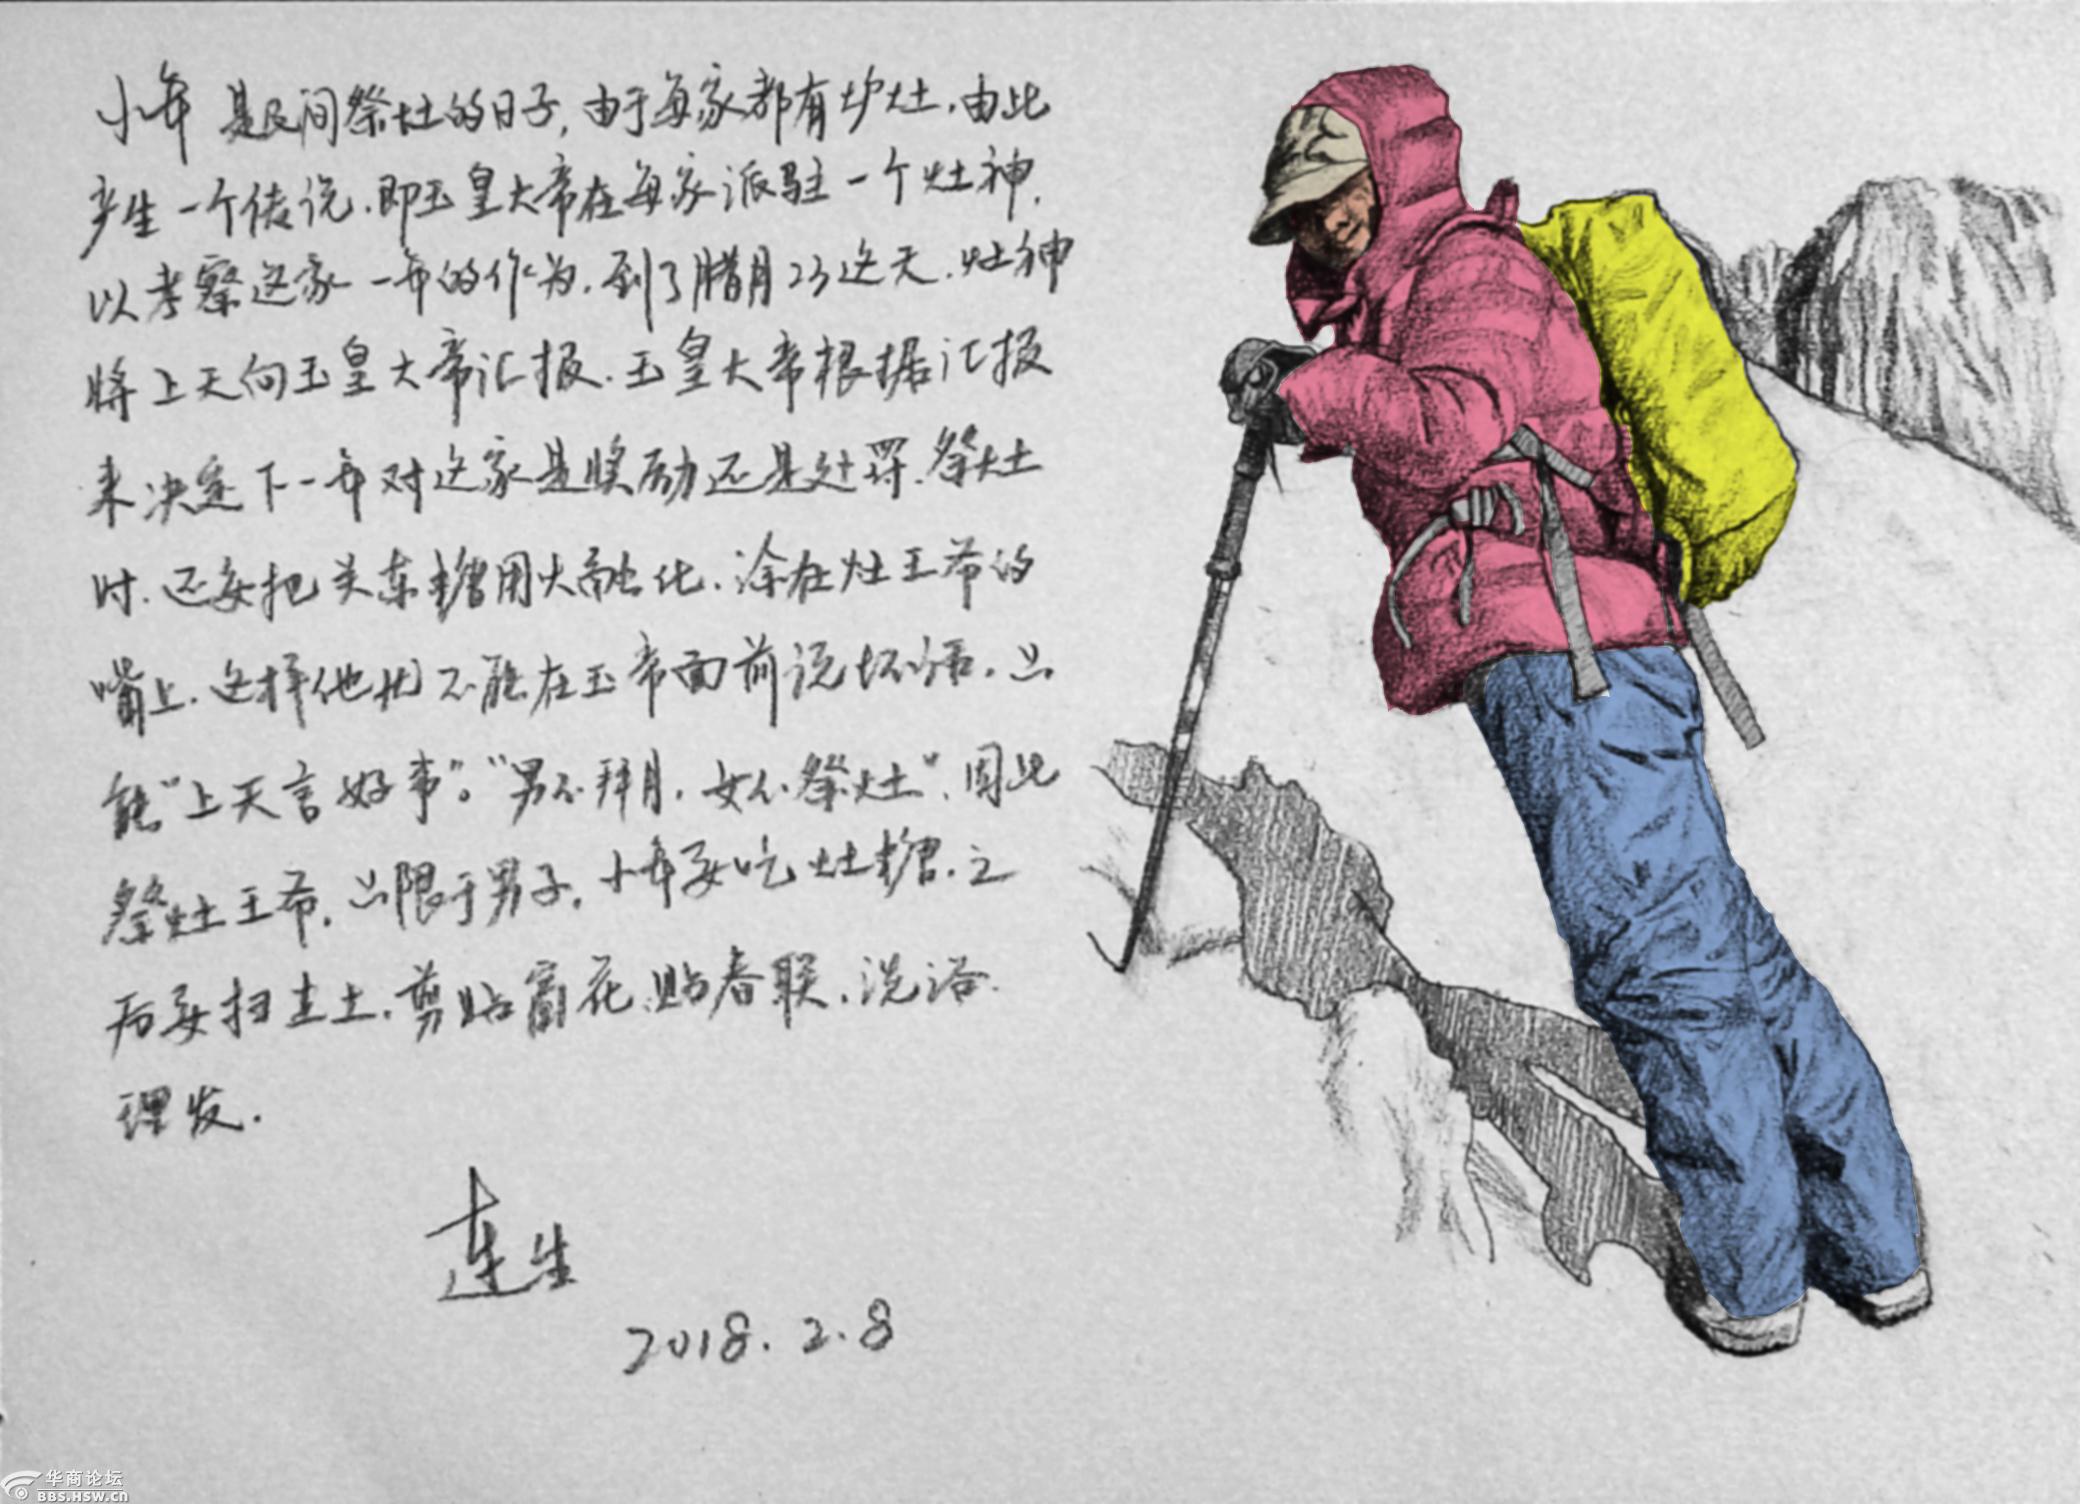 小年 是民间祭灶的日子,由于每家都有炉灶,由此
产生一个传说,即玉皇大帝在每家派驻一个灶神,
以考察这家一年的作为,到了腊月23这天,灶神
将上天向玉皇大帝汇报,玉皇大帝根据汇报
来决定下一年对这家是奖励还是处罚,祭灶
时,还要把关东糖用火融化,涂在灶王爷的
嘴上,这样他就不能在玉帝面前说坏话,只
能“上天言好事”。“男不拜月,女不祭灶”,因此
祭灶王爷,只限于男子,小年要吃灶糖,之
后要扫尘土,剪贴窗花,贴春联,洗浴,
理发.
连生
2018.2.8
华商论坛
BBS.HSW.CN